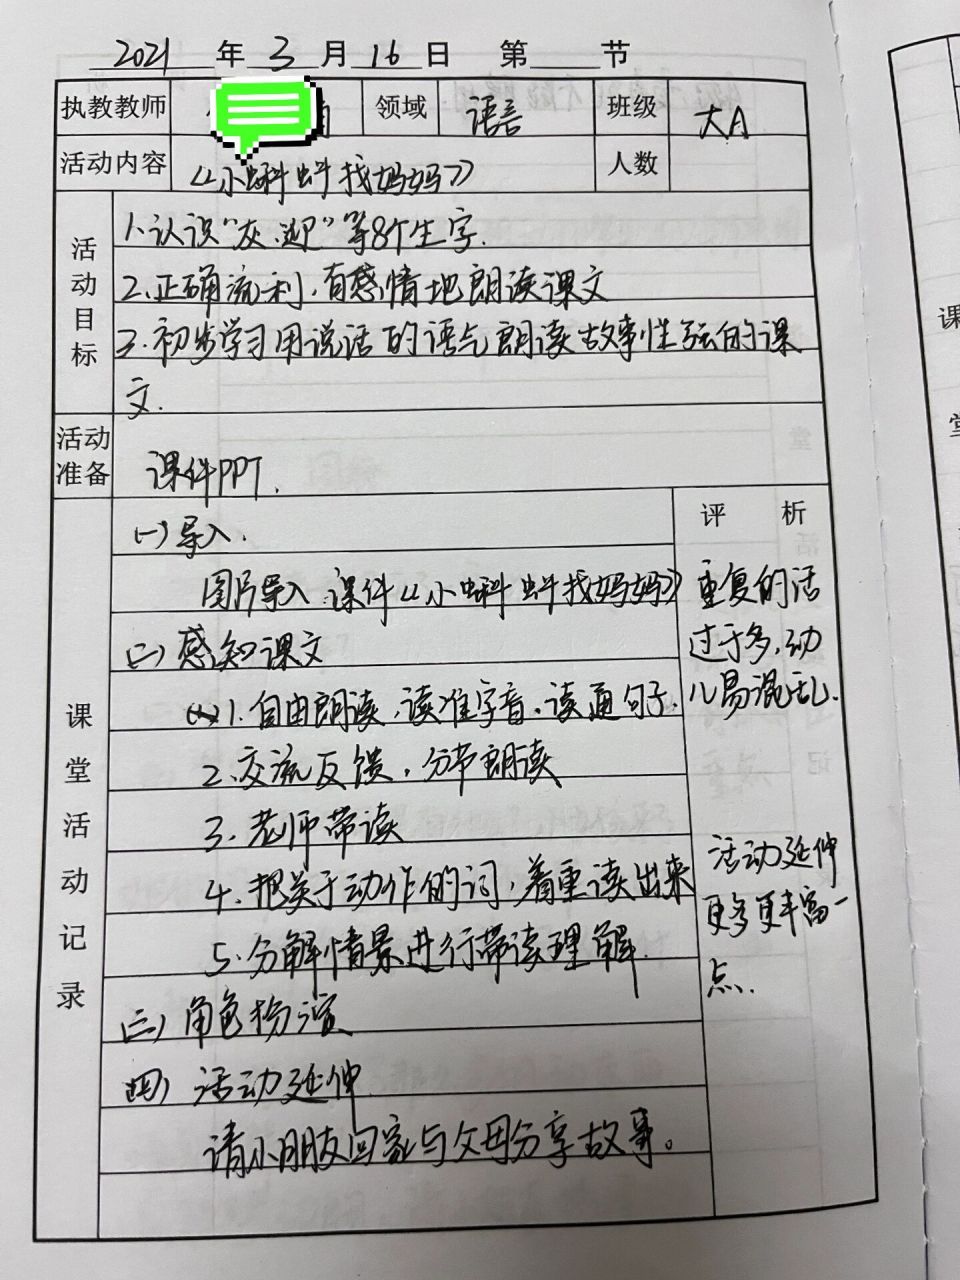 2021 年 3 月 16 日 第 节
执教教师 领域 语言 班级 大A
活动内容 《小蝌蚪找妈妈》 人数
活动目标
1.认识“灰.迎”等8个生字.
2.正确流利.有感情地朗读课文
3.初步学习用说话的语气朗读故事性强的课
文.
活动准备
课件PPT.
课堂活动记录
(一)导入.
图片导入.课件《小蝌蚪找妈妈》
(二)感知课文
1.自由朗读.读准字音.读通句子.
2.交流反馈.分节朗读
3.老师带读
4.把关于动作的词,着重读出来
5.分解情景进行带读理解.
(三)角色扮演
(四)活动延伸
请小朋友回家与父母分享故事。
评 析
重复的话
过于多.动
儿易混乱.
活动延伸
更多更丰富一
点.